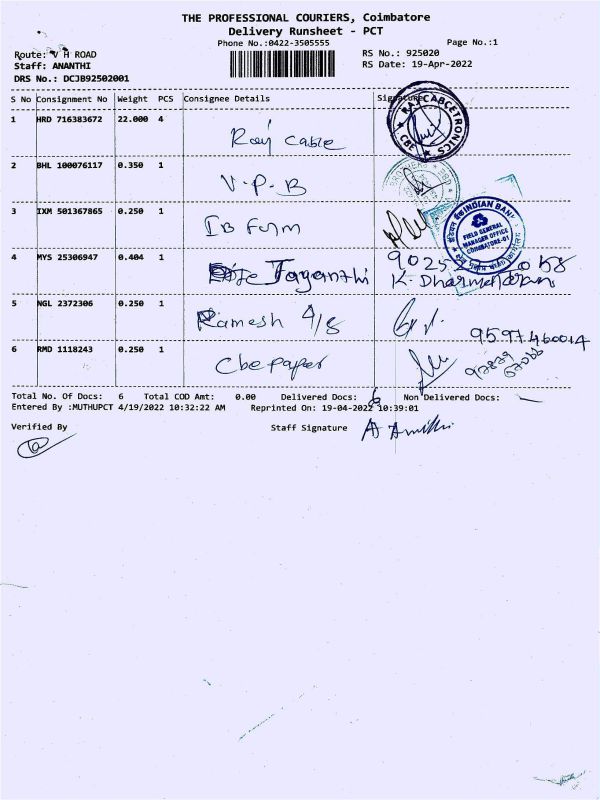 THE PROFESSIONAL COURIERS, Coimbatore
Delivery Runsheet - PCT
Phone No.:0422-3505555
Page No.:1
Route: V H ROAD
RS No.: 925020
Staff: ANANTHI
RS Date: 19-Apr-2022
DRS No.: DCJB92502001
S No Consignment No Weight PCS Consignee Details Signature
1 HRD 716383672 22.000 4
Roy Cable
CABCETRONICS
CBE
2 BHL 100076117 0.350 1
V.P.B
3 IXM 501367865 0.250 1
IB Form
INDIAN BANK
FIELD GENERAL
MANAGER OFFICE
COIMBATORE-01
4 MYS 25306947 0.404 1
Jayanthi
K. Dharmendran
5 NGL 2372306 0.250 1
Ramesh 4/8
9597460014
6 RMD 1118243 0.250 1
Cbe paper
Total No. Of Docs: 6 Total COD Amt: 0.00 Delivered Docs: 6 Non Delivered Docs:
Entered By :MUTHUPCT 4/19/2022 10:32:22 AM Reprinted On: 19-04-2022 10:39:01
Verified By
Staff Signature